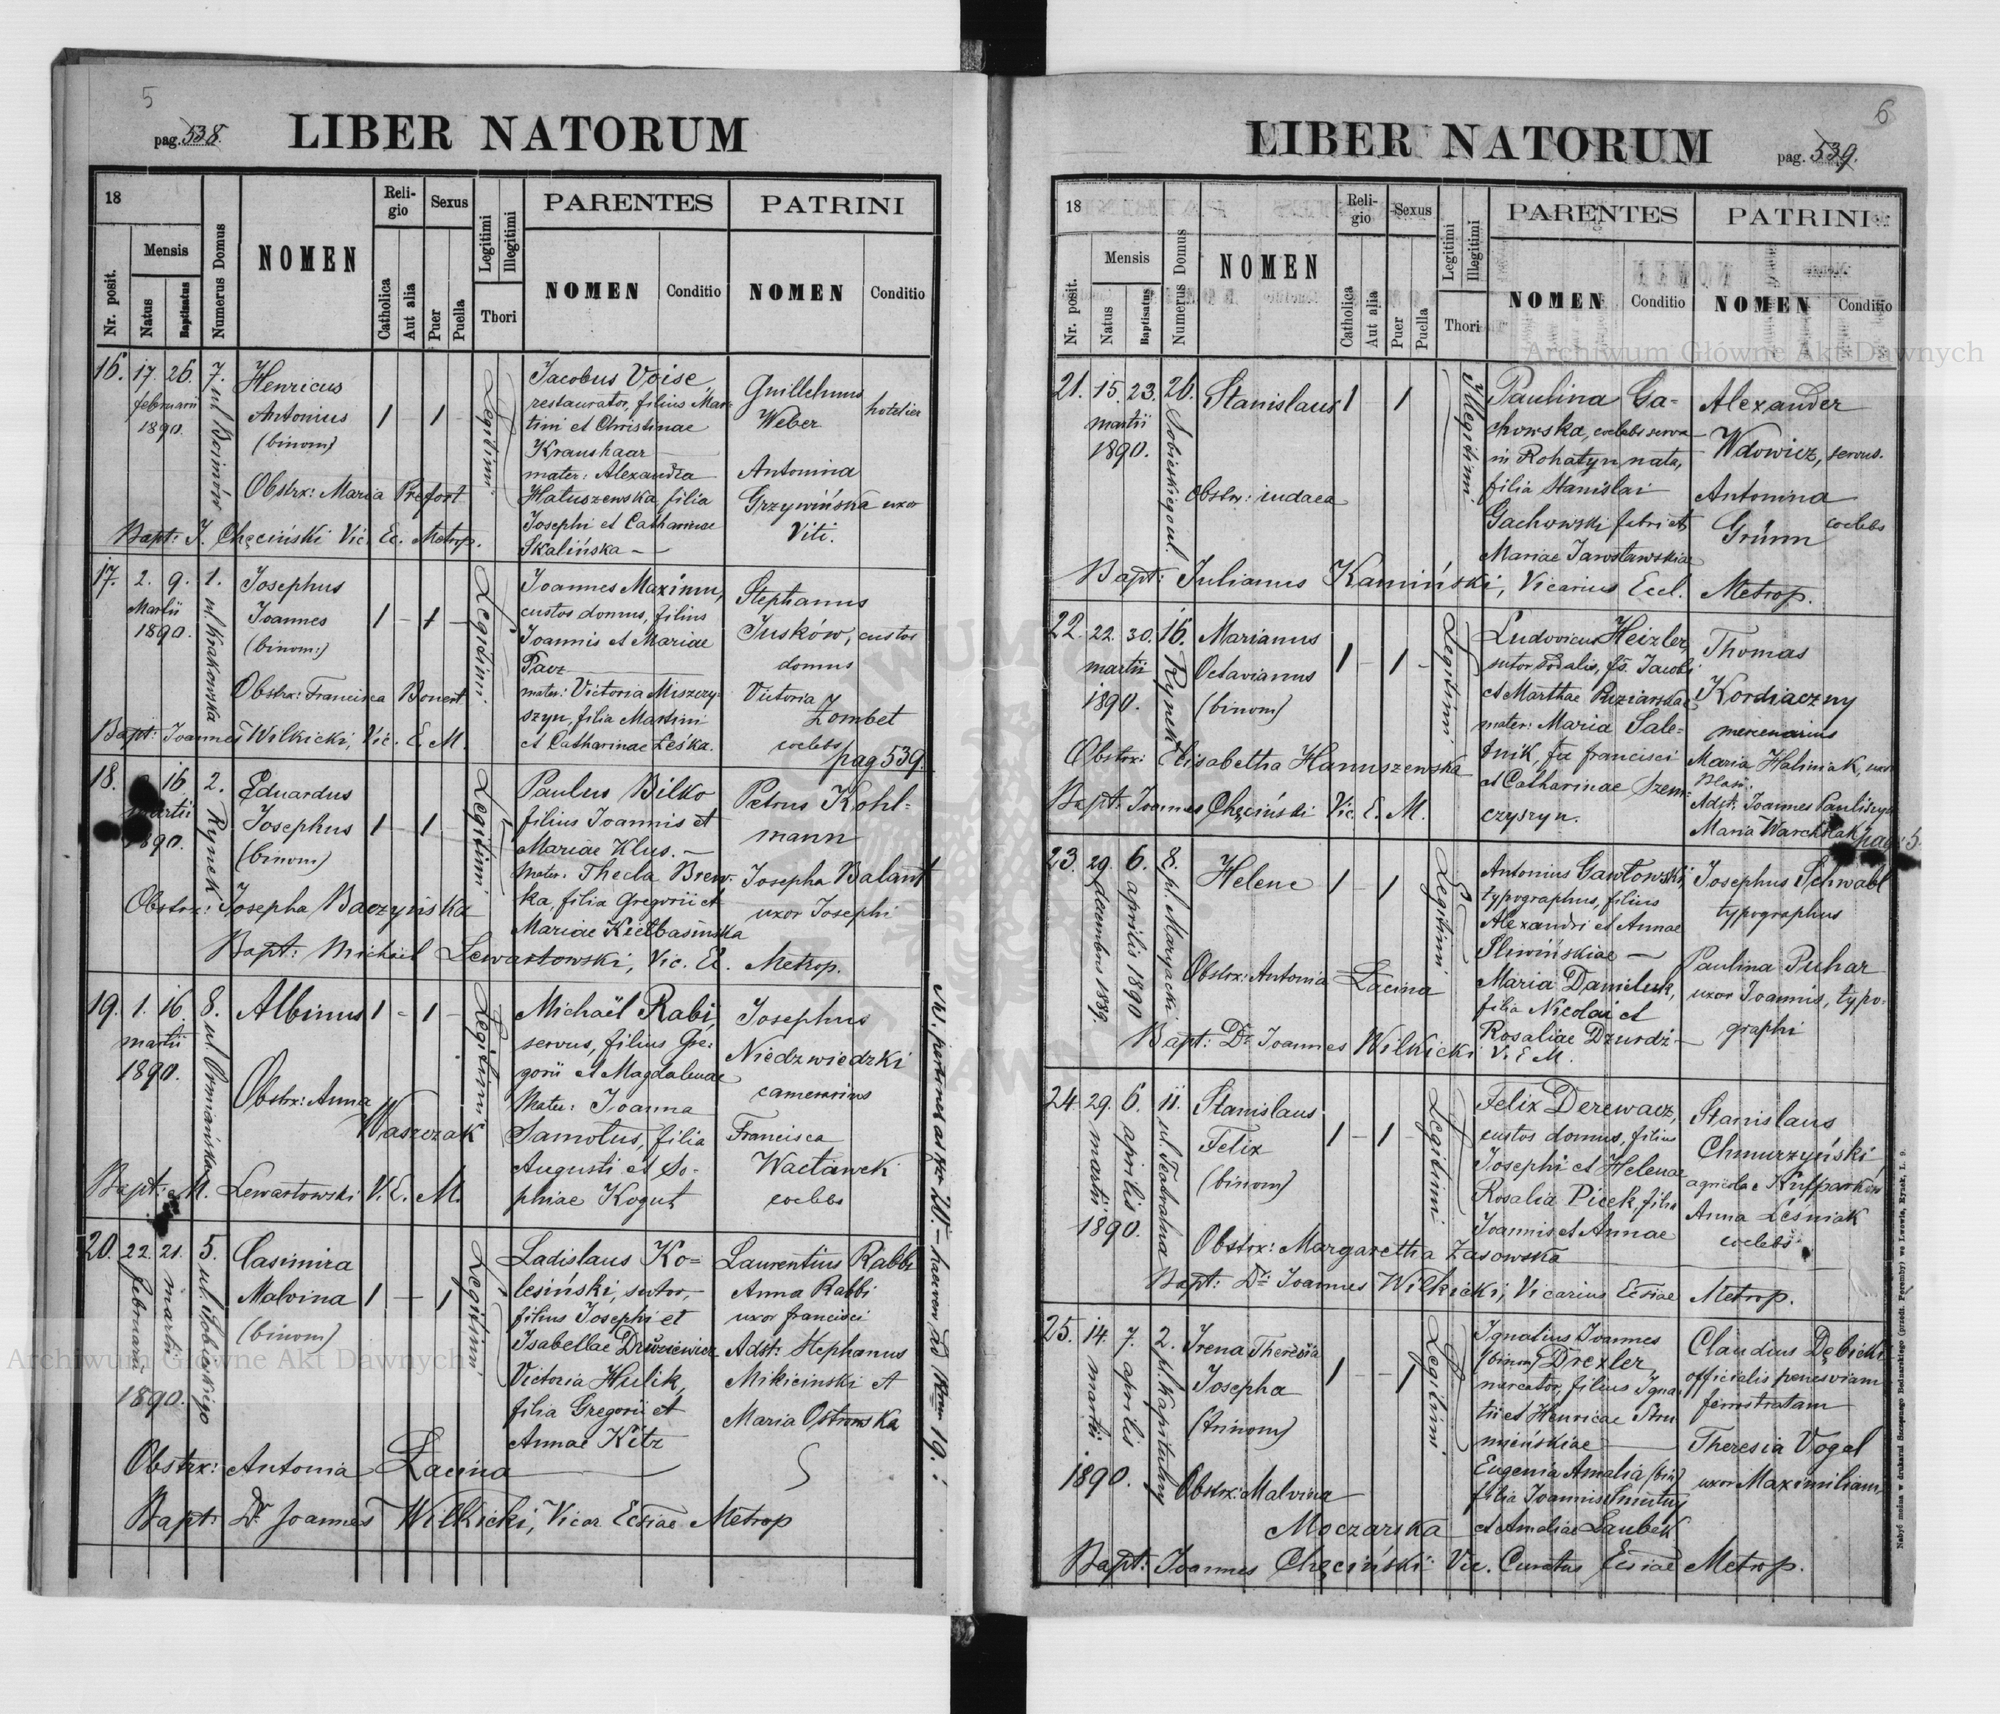 5
pag. 538.
LIBER NATORUM
18
Mensis
Nr. posit.
Natus
Baptisatus
Numerus Domus
NOMEN
Religio
Catholica
Aut alia
Sexus
Puer
Puella
Legitimi
Illegitimi
Thori
PARENTES
NOMEN
Conditio
PATRINI
NOMEN
Conditio
16. 17. 26. 7.
februarii
1890.
Henricus
Antonius
(binom)
1 1
Legitimi
Obstrx: Maria Prefort
Bapt: J. Chęciński Vic. Ec. Metrop.
Jacobus Voise
restaurator, filius Mar-
tini et Christinae
Kraushaar
mater: Alexandra
Hatuszewska, filia
Josephi et Catharinae
Skalińska —
Guillelmus
Weber
hotelier
Antonina
Grzywińska uxor
Viti.
17. 2. 9. 1.
Martii
1890.
ul. Krakowska
Josephus
Joannes
(binom:)
1 - 1 -
Legitimi
Obstrx: Francisca Bonert
Bapt: Joannes Wilkicki, Vic. E. M.
Joannes Maximu,
custos domus, filius
Joannis et Mariae
Pacz
mater: Victoria Miszczy-
szyn, filia Martini
et Catharinae Leśka.
Stephanus
Juśków, custos
domus
Victoria
Zombet
coelebs
pag 539.
18. 16. 2.
martii
1890.
Rynek
Eduardus
Josephus
(binom)
1 - 1 -
Legitimi
Obstrx: Josepha Baczyńska
Bapt: Michael Lewartowski, Vic. E. Metrop.
Paulus Bilko
filius Joannis et
Mariae Klus. —
Mater: Thecla Brew-
ka, filia Gregorii et
Mariae Kiełbasińska
Petrus Kohl-
mann
Josepha Balant
uxor Josephi
19. 1. 16. 8.
martii
1890.
ul Ormiańska
Albinus
1 - 1 -
Legitimi
Obstrx: Anna
Waszczak
Bapt: M. Lewartowski V. E. M.
Michaël Rabi,
servus, filius Gre-
gorii et Magdalenae
Mater: Joanna
Samotus, filia
Augusti et So-
phiae Kogut
Josephus
Niedzwiedzki
camerarius
Francisca
Wacławek
coelebs
20. 22. 21. 5.
februarii
martii
1890.
ul. Sobieskiego
Casimira
Malvina
(binom)
1 - 1
Legitimi
Obstrx: Antonia Lacina
Bapt: Dr. Joannes Wilkicki, Vicar Ecsiae Metrop
Ladislaus Ko-
lesiński, sutor, -
filius Josephi et
Isabellae
Victoria Hulik,
filia Gregorii et
Annae Kitz
Laurentius Rabbi
Anna Rabbi
uxor francisci
Adst: Stephanus
Mikicinski et
Maria Ostrowska
6
pag. 539.
LIBER NATORUM
18
Mensis
Nr. posit.
Natus
Baptisatus
Numerus Domus
NOMEN
Religio
Catholica
Aut alia
Sexus
Puer
Puella
Legitimi
Illegitimi
Thori
PARENTES
NOMEN
Conditio
PATRINI
NOMEN
Conditio
Archiwum Główne Akt Dawnych
21. 15. 23. 26.
martii
1890.
Sobieskiego ul.
Stanislaus
1 1
Illegitimi
Obstrx: iudaea
Bapt: Julianus Kamiński, Vicarius Eccl. Metrop.
Paulina Ga-
chowska, coelebs serva
in Rohatyn nata,
filia Stanislai
Gachowski fabri et
Mariae Jarosławskiae
Alexander
Wdowicz, servus.
Antonina
Grünn
coelebs
22. 22. 30. 16.
martii
1890.
Rynek
Marianus
Octavianus
(binom)
1 - 1 -
Legitimi
Obstrx: Elisabetha Hanuszewska
Bapt: Joannes Chęciński Vic. E. M.
Ludovicus Heizler,
sutor sodalis, fs. Jacobi
et Marthae Puziarskae
mater: Maria Sale-
tnik, fa francisci
et Catharinae Szem-
czyszyn.
Thomas
Kordiaczny
mercenarius
Maria Haliniak, uxor
Blasii
Adst: Joannes Pauliszyn
Maria Warchołak
23. 29. 6. 8.
decembris 1889.
aprilis 1890
pl. Maryacki
Helene
1 - 1
Legitimi
Obstrx: Antonia Lacina
Bapt: Dr Joannes Wilkicki V. E M.
Antonius Gawłowski,
typographus, filius
Alexandri et Annae
Śliwińskiae —
Maria Daniluk,
filia Nicolai et
Rosaliae Dzurdź
Josephus Schwabl
typographus
Paulina Puhar
uxor Joannis, typo-
graphi
24. 29. 6. 11.
martii
aprilis
1890.
ul. Teatralna
Stanislaus
Felix
(binom)
1 - 1 -
Legitimi
Obstrx: Margaretha Zasowska
Bapt: Dr: Joannes Wilkicki, Vicarius Ecsiae Metrop.
Felix Derewacz,
custos domus, filius
Josephi et Helenae
Rosalia Picek, filia
Joannis et Annae
Stanislaus
Chmurzyński,
agricola e Kulparków
Anna Leśniak
coelebs
25. 14. 7. 2.
martii
aprilis
1890.
pl. Kapitulny
Irena Theresia
Josepha
(trinom)
1 - 1
Legitimi
Obstrx: Malvina
Moczarska
Bapt: Joannes Chęciński Vic. Curatus Ecsiae Metrop.
Ignatius Joannes
(binom) Drexler,
mercator, filius Igna-
tii et Henricae Stru-
mieńskiae
Eugenia Amalia (bin)
filia Joannis Smutny
et Amaliae Laubek
Claudius Dębicki
officialis penes viam
ferrostratam
Theresia Vogel
uxor Maximiliani
Nabyć można w drukarni Szczęsnego Bednarskiego (przedt. Poremby) we Lwowie, Rynek, L. 9.
Archiwum Główne Akt Dawnych